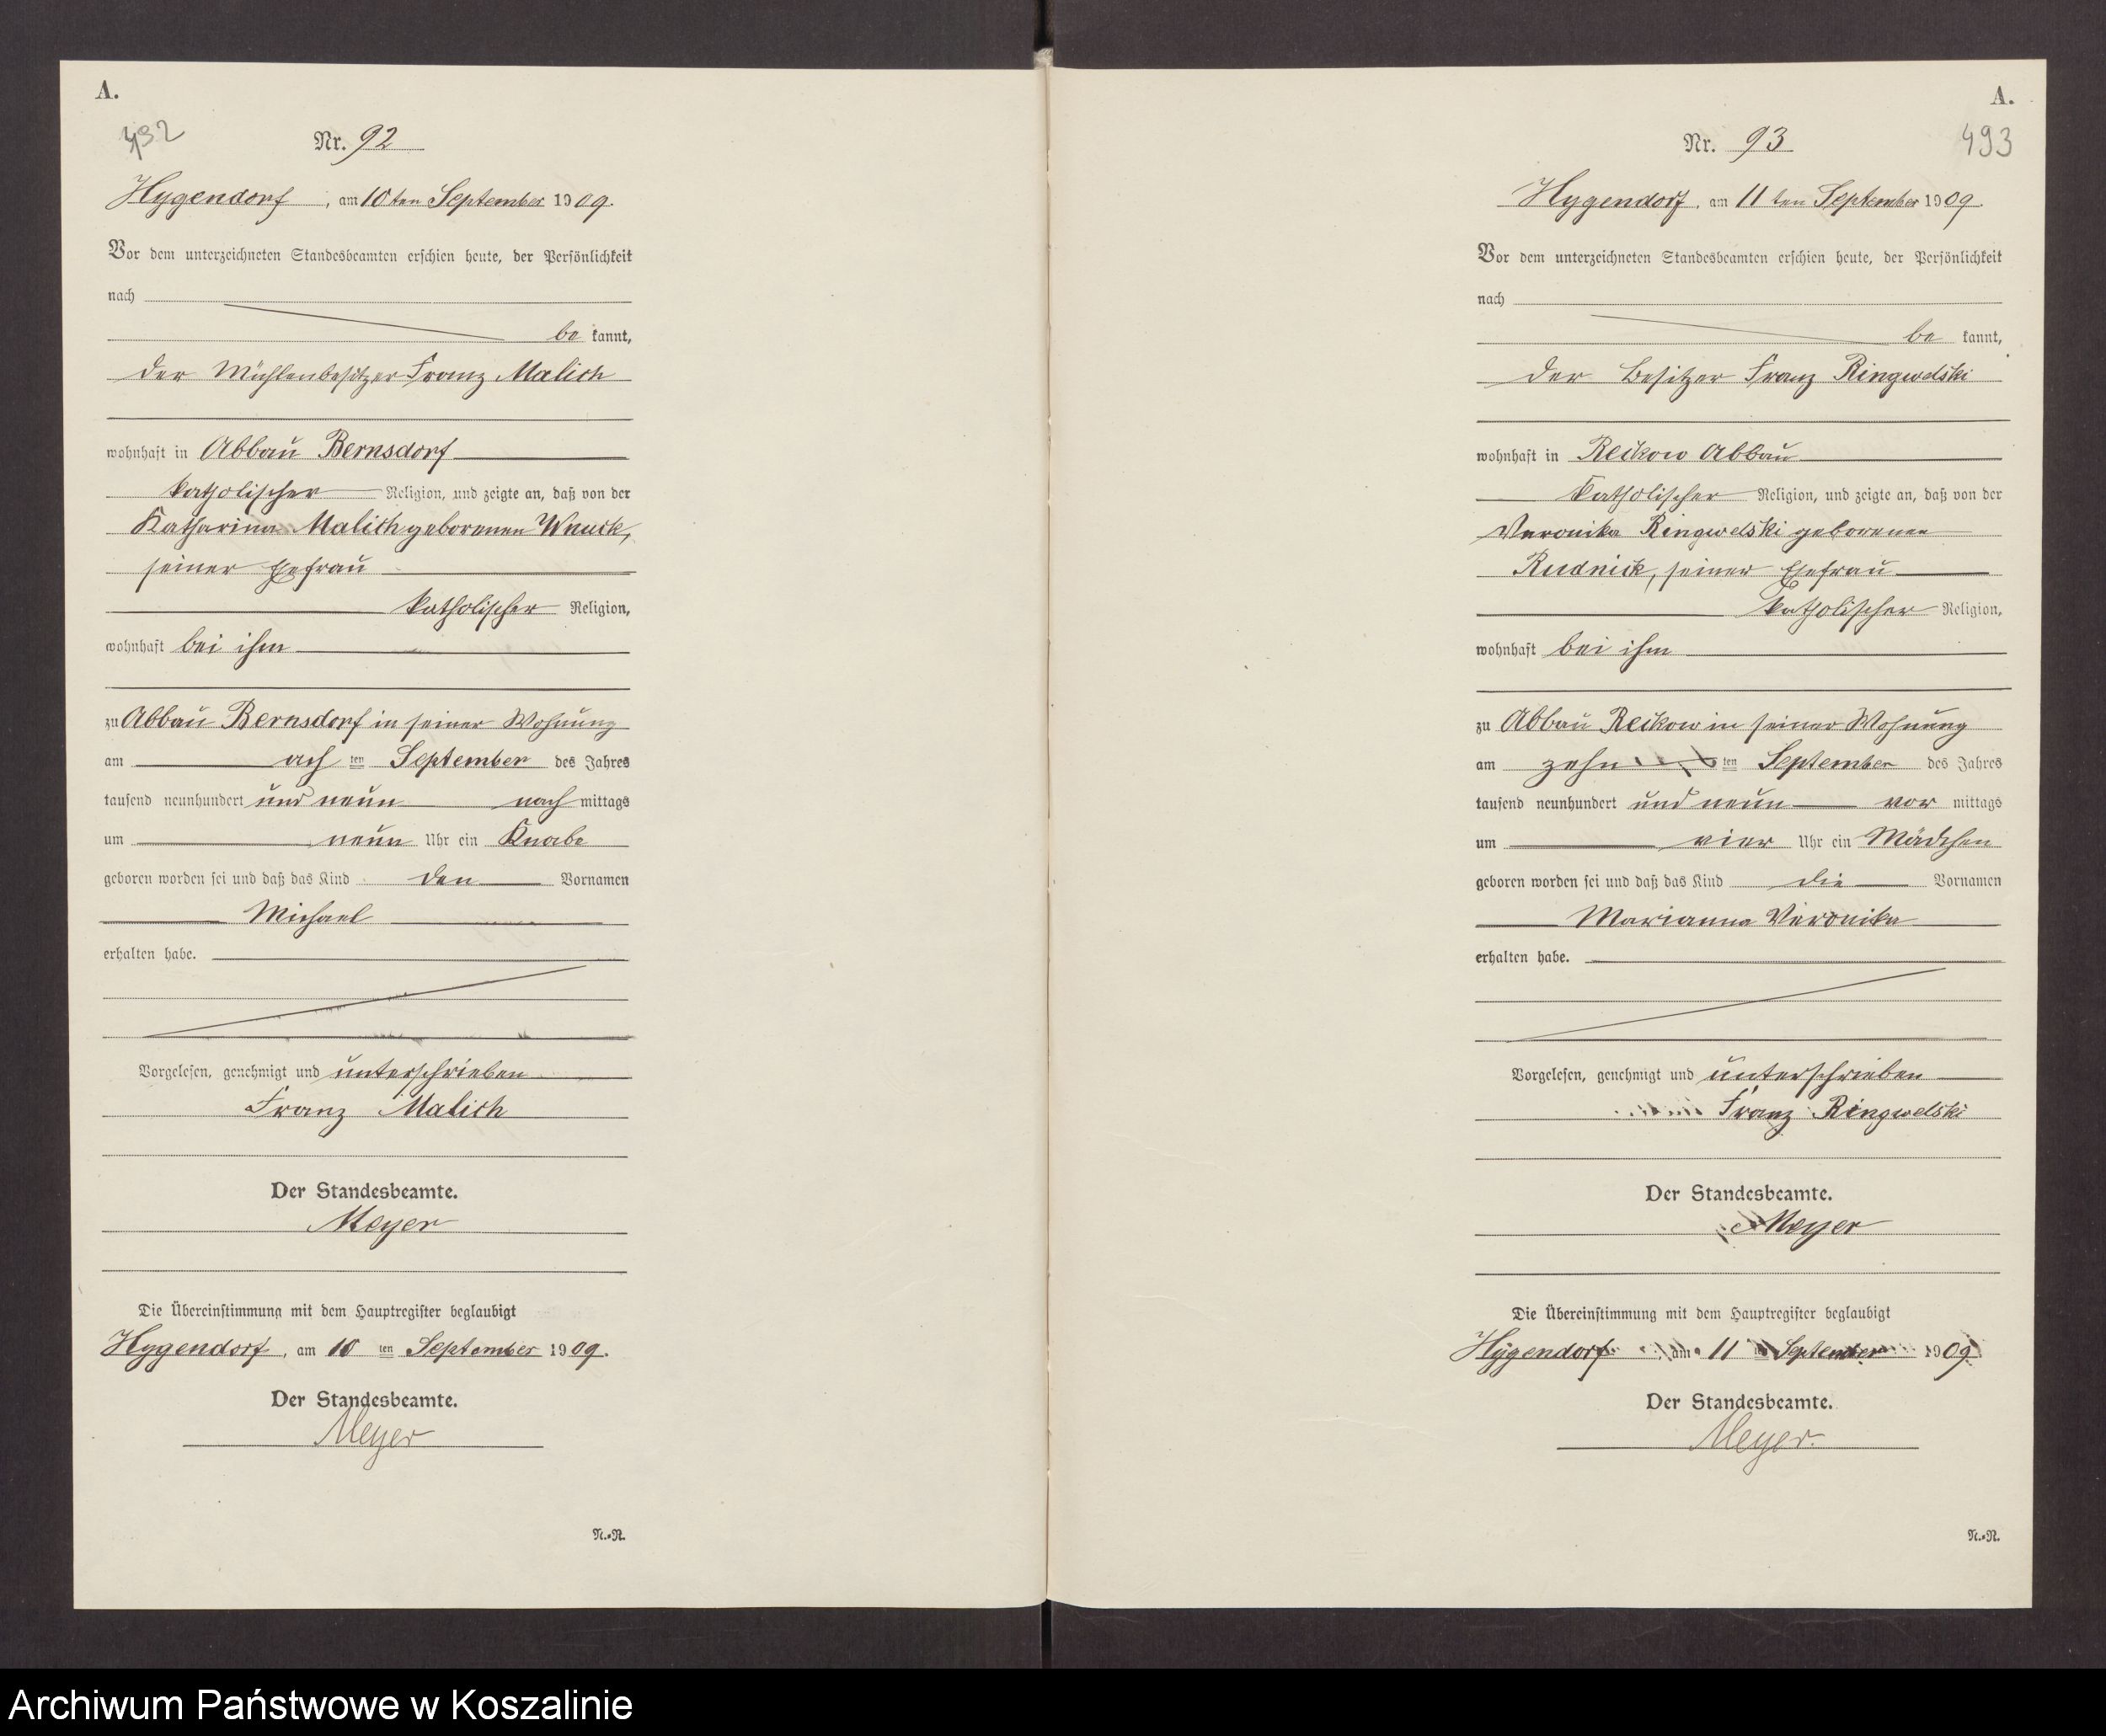 A.
492
Nr. 92
Hygendorf, am 10ten September 1909.
Vor dem unterzeichneten Standesbeamten erschien heute, der Persönlichkeit
nach
be kannt,
der Mühlenbesitzer Franz Malich
wohnhaft in Abbau Bernsdorf
katholischer Religion, und zeigte an, daß von der
Katharina Malich geborenen Wnuck,
seiner Ehefrau
katholischer Religion,
wohnhaft bei ihm
zu Abbau Bernsdorf in seiner Wohnung
am ach ten September des Jahres
tausend neunhundert und neun nach mittags
um neun Uhr ein Knabe
geboren worden sei und daß das Kind den Vornamen
Michael
erhalten habe.
Vorgelesen, genehmigt und unterschrieben
Franz Malich
Der Standesbeamte.
Meyer
Die Übereinstimmung mit dem Hauptregister beglaubigt
Hygendorf, am 10 ten September 1909.
Der Standesbeamte.
Meyer
N.=N.
A.
493
Nr. 93
Hygendorf, am 11 ten September 1909.
Vor dem unterzeichneten Standesbeamten erschien heute, der Persönlichkeit
nach
be kannt,
der Besitzer Franz Ringwelski
wohnhaft in Reikow Abbau
katholischer Religion, und zeigte an, daß von der
Veronika Ringwelski geborenen
Rudnick, seiner Ehefrau
katholischer Religion,
wohnhaft bei ihm
zu Abbau Reikow in seiner Wohnung
am zehn ten September des Jahres
tausend neunhundert und neun vor mittags
um vier Uhr ein Mädchen
geboren worden sei und daß das Kind die Vornamen
Marianna Veronika
erhalten habe.
Vorgelesen, genehmigt und unterschrieben
Franz Ringwelski
Der Standesbeamte.
Meyer
Die Übereinstimmung mit dem Hauptregister beglaubigt
Hygendorf, am 11 ten September 1909.
Der Standesbeamte.
Meyer.
N.=N.
Archiwum Państwowe w Koszalinie